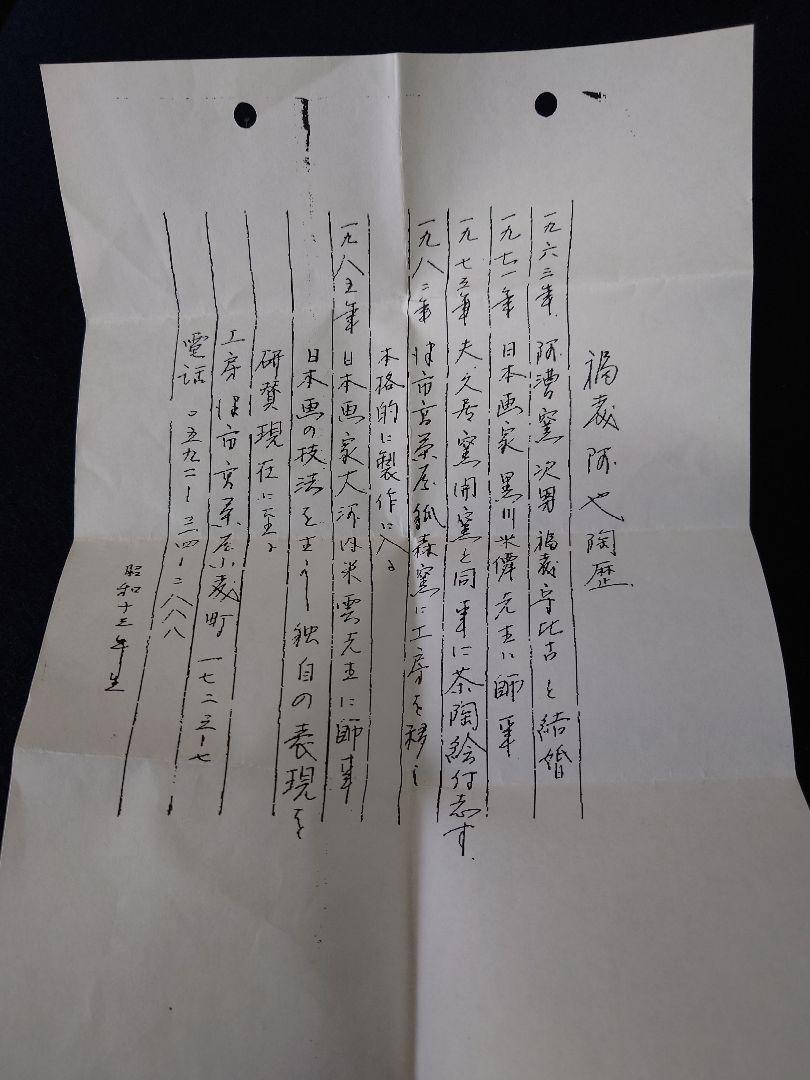 福森阿也陶歴
一九六三年 阿漕窯 次男 福森守比古と結婚
一九七一年 日本画家 黒川米傳先生に師事
一九七五年 夫文吾窯開窯と同事に茶陶絵付志す.
一九八二年 津市高茶屋狐森窯に工房を移し
本格的に製作に入る
一九八五年 日本画家大河内米雲先生に師事
日本画の技法を生かし独自の表現を
研賛現在に至る
工房 津市高茶屋小森町 一七二三ー七
電話 〇五九二ー三四ー二八八八
昭和十三年生